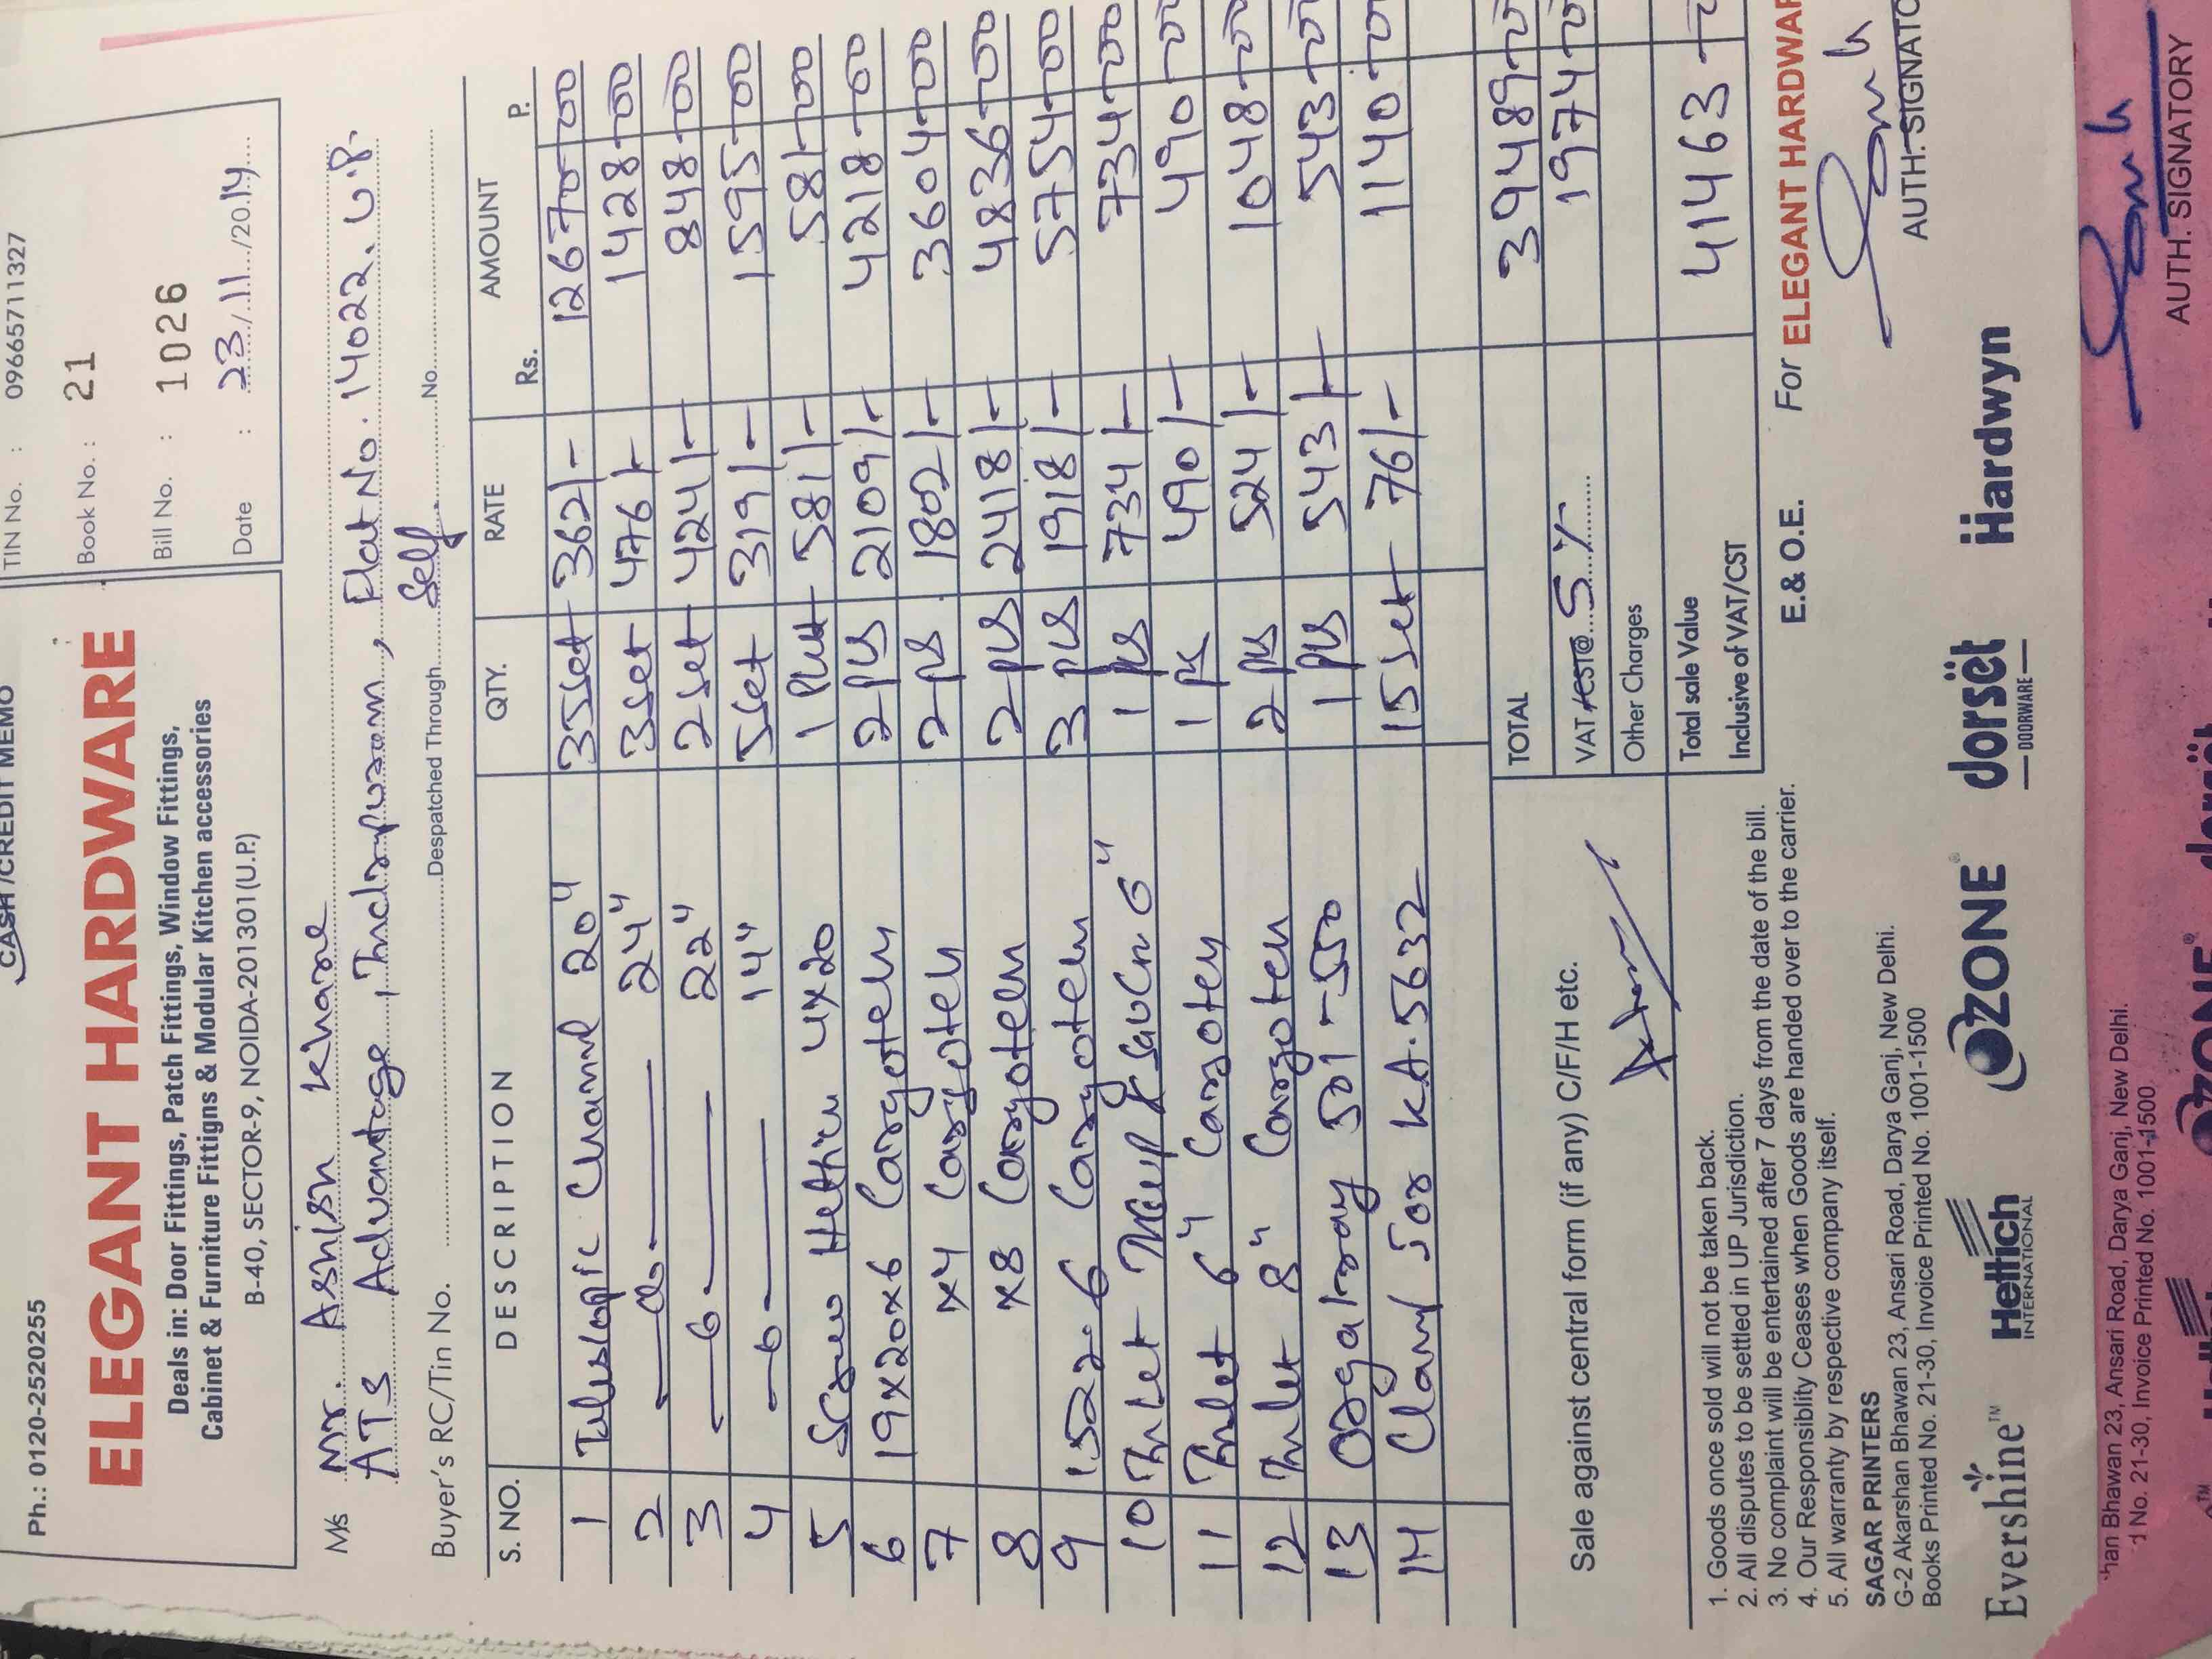 CASH /CREDIT MEMO
Ph.: 0120-2520255
TIN No. : 09665711327
ELEGANT HARDWARE
Book No. : 21
Deals in: Door Fittings, Patch Fittings, Window Fittings,
Cabinet & Furniture Fittigns & Modular Kitchen accessories
Bill No. : 1026
B-40, SECTOR-9, NOIDA-201301(U.P.)
Date : 23/11/2014
M/s Mr. Ashish Khare
ATS Advantage, Indrapuram, Flat No. 14022. U.P.
Buyer's RC/Tin No. Despatched Through Self. No.
S. NO. DESCRIPTION QTY. RATE AMOUNT
Rs. P.
1 Teleslopic Channel 20" 35set 362/- 12670-00
2 24" 3set 476/- 1428-00
3 22" 2set 424/- 848-00
4 14" 5set 319/- 1595-00
5 Screw Hettich 4x20 1 Pkt 581/- 581-00
6 19x20x6 Cargotech 2 pcs 2109/- 4218-00
7 x4 Cargotech 2 pcs 1802/- 3604-00
8 x8 Cargotech 2 pcs 2418/- 4836-00
9 1522.6 Cargotech 3 pcs 1918/- 5754-00
10 Inlet & 6" 1 pcs 734/- 734-00
11 Inlet 6" Cargotech 1 pc 490/- 490-00
12 Inlet 8" Cargotech 2 pcs 524/- 1048-00
13 Orgatray 501-550 1 pcs 543/- 543-00
14 Clamp for KA.5632 15set 76/- 1140-00
TOTAL 39489-0
Sale against central form (if any) C/F/H etc.
VAT /CST@ 5% 1974-0
Other Charges
Total sale Value
Inclusive of VAT/CST 41463-
1. Goods once sold will not be taken back.
2. All disputes to be settled in UP Jurisdiction.
3. No complaint will be entertained after 7 days from the date of the bill.
4. Our Responsiblity Ceases when Goods are handed over to the carrier.
5. All warranty by respective company itself.
E.& O.E. For ELEGANT HARDWAR
SAGAR PRINTERS
G-2 Akarshan Bhawan 23, Ansari Road, Darya Ganj, New Delhi.
Books Printed No. 21-30, Invoice Printed No. 1001-1500
AUTH. SIGNATO
Evershine™ Hettich INTERNATIONAL OZONE® dorsët DOORWARE Hardwyn
han Bhawan 23, Ansari Road, Darya Ganj, New Delhi.
d No. 21-30, Invoice Printed No. 1001-1500
AUTH. SIGNATORY
TM Hettich OZONE® dorsët